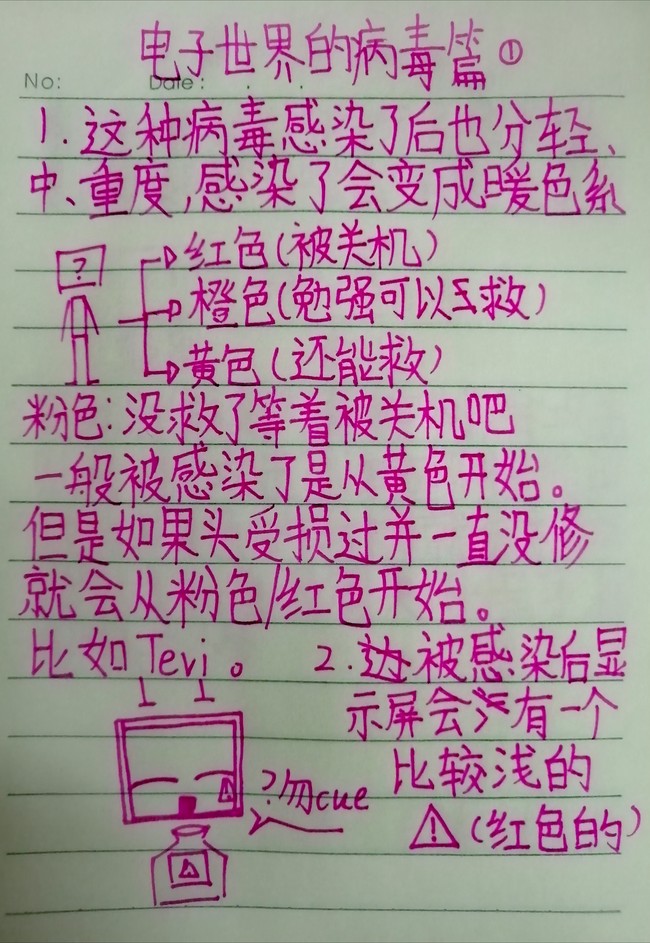 电子世界的病毒篇①
No:
Date:
1.这种病毒感染了后也分轻、
中、重度,感染了会变成暖色系
?
红色(被关机)
橙色(勉强可以救)
黄色(还能救)
粉色:没救了等着被关机吧
一般被感染了是从黄色开始。
但是如果头受损过并一直没修
就会从粉色/红色开始。
比如Tevi。
2.被感染后显
示屏会有一个
比较浅的
⚠(红色的)
?勿cue